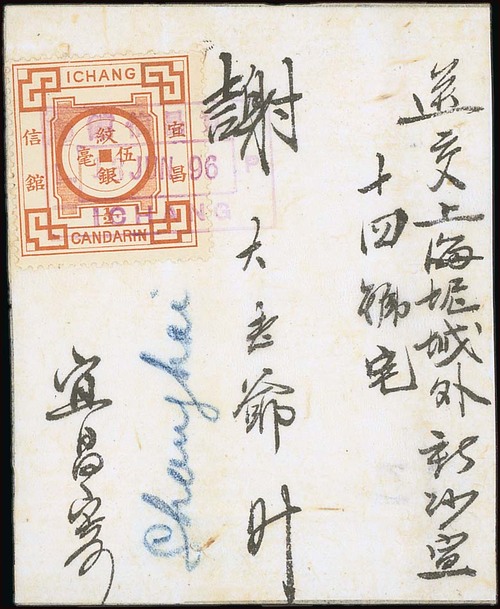 送交上海坭城外新沙宣
十四號宅
謝大老爺升
Shanghai
宜昌寄
ICHANG
宜昌
信館
紋銀
伍毫
CANDARIN
JUN 96
ICHANG